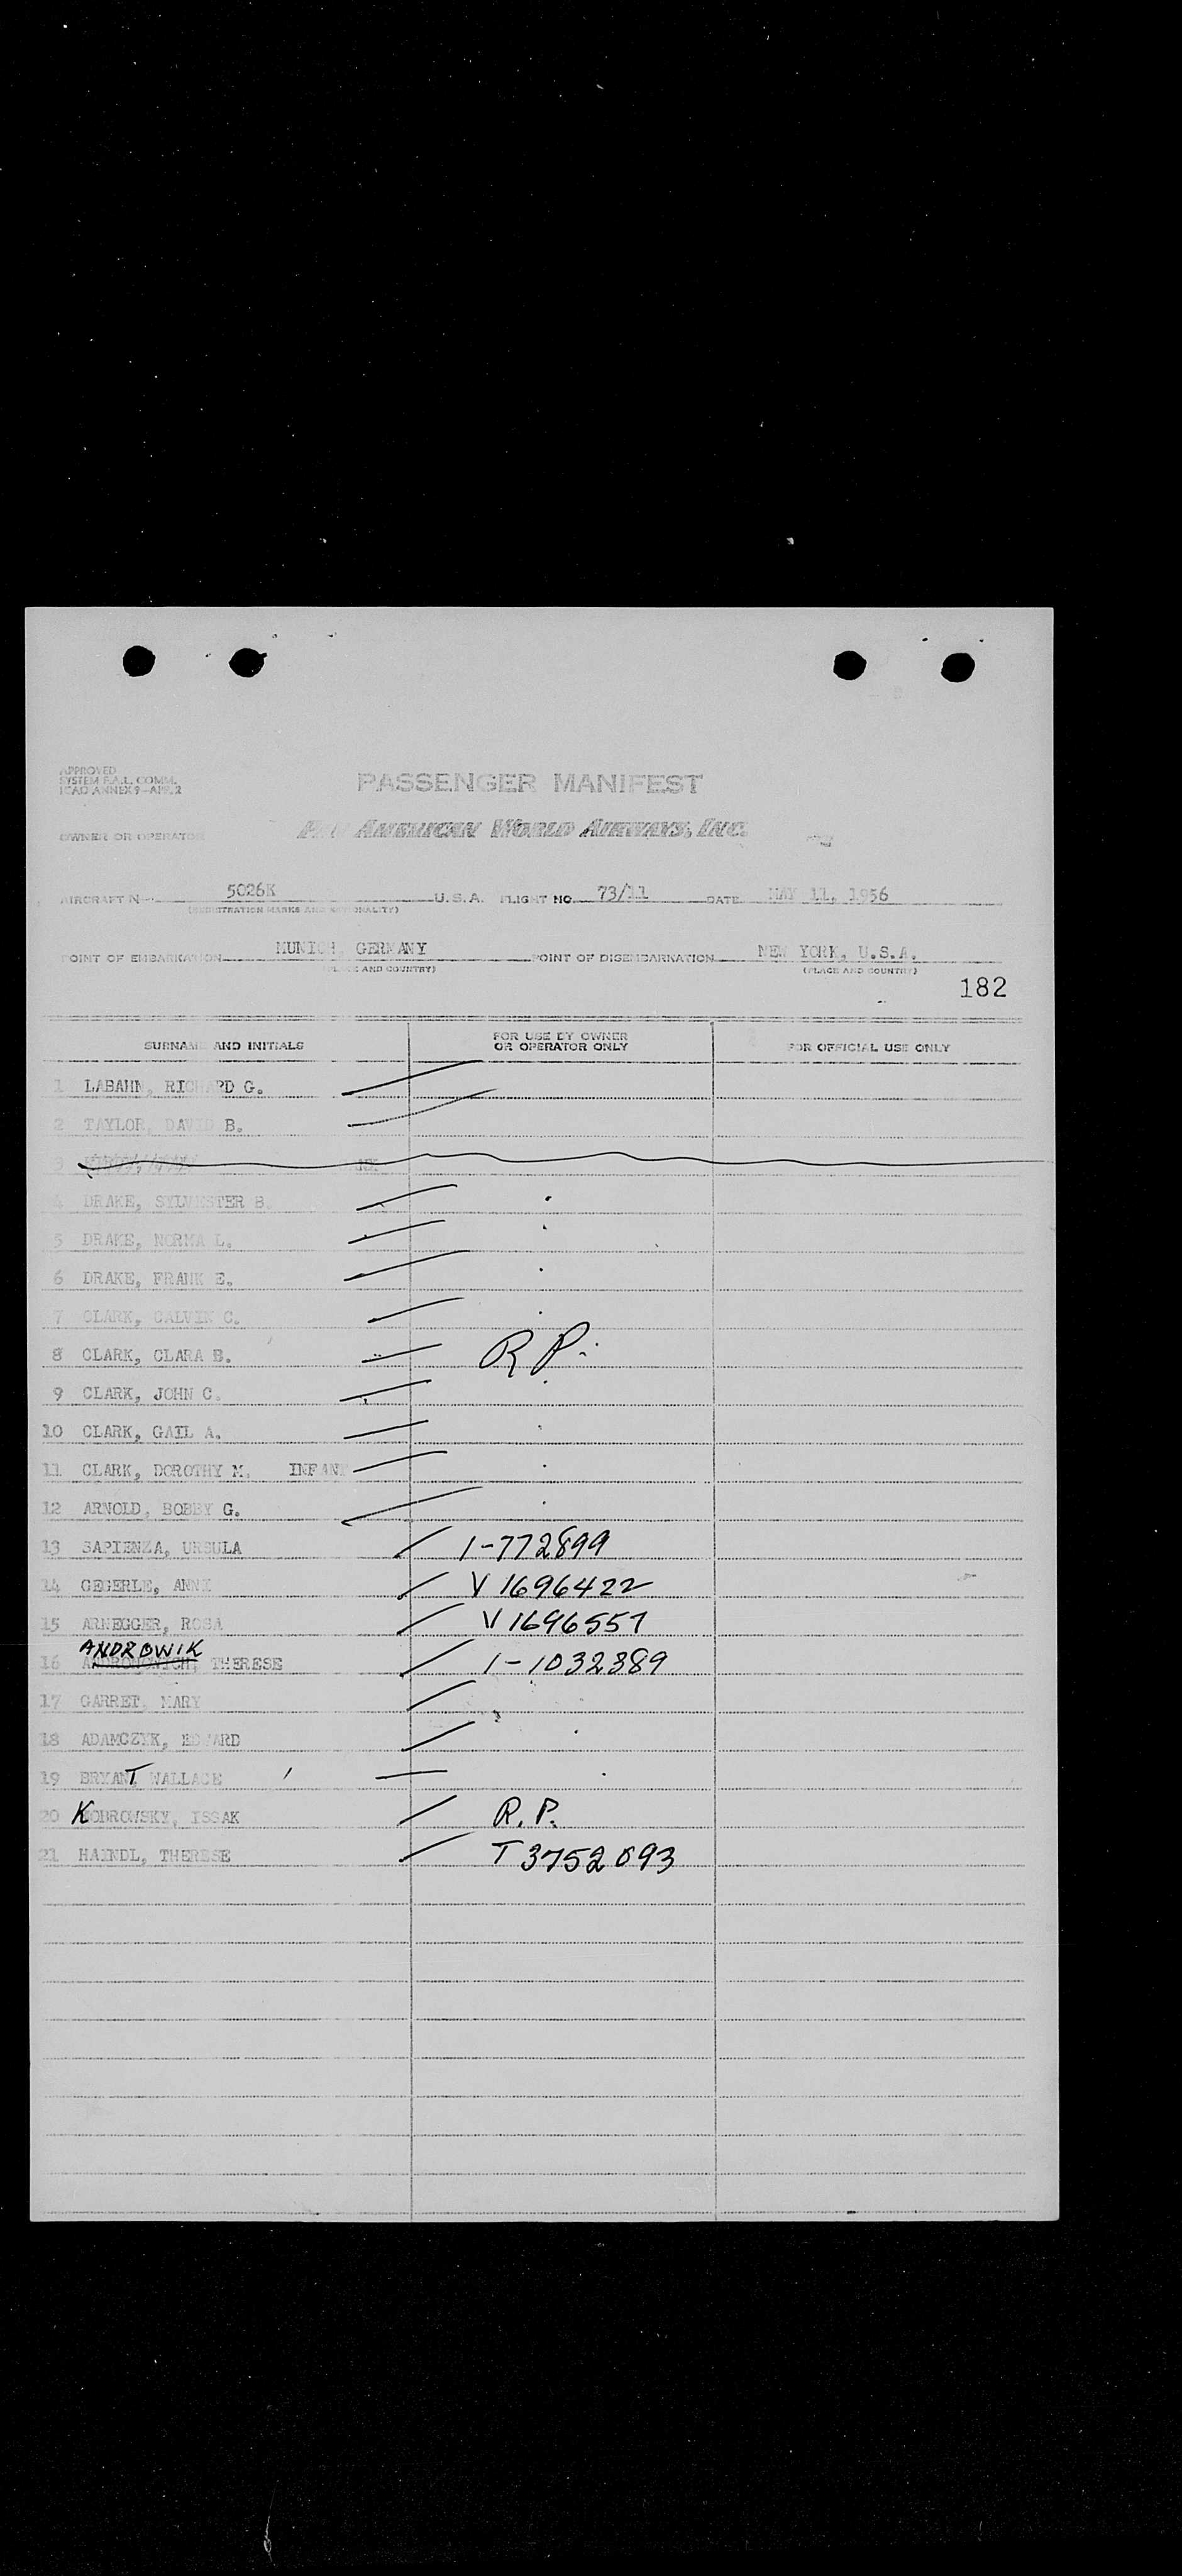 APPROVED
SYSTEM F.A.L. COMM.
ICAO ANNEX 9-APP. 2
PASSENGER MANIFEST
OWNER OR OPERATOR PAN AMERICAN WORLD AIRWAYS, INC.
AIRCRAFT N 5026K U.S.A. FLIGHT NO. 73/11 DATE MAY 11, 1956
(REGISTRATION MARKS AND NATIONALITY)
POINT OF EMBARKATION MUNICH, GERMANY POINT OF DISEMBARKATION NEW YORK, U.S.A.
(PLACE AND COUNTRY) (PLACE AND COUNTRY)
182
SURNAME AND INITIALS FOR USE BY OWNER OR OPERATOR ONLY FOR OFFICIAL USE ONLY
1 LABAHN, RICHARD G.
2 TAYLOR, DAVID B.
3
4 DRAKE, SYLVESTER B.
5 DRAKE, NORMA L.
6 DRAKE, FRANK E.
7 CLARK, CALVIN C.
8 CLARK, CLARA B. R P.
9 CLARK, JOHN C.
10 CLARK, GAIL A.
11 CLARK, DOROTHY M. INFANT
12 ARNOLD, BOBBY G.
13 SAPIENZA, URSULA 1-772899
14 GEGERLE, ANNI V 1696422
15 ARNEGGER, ROSA V 1696557
ANDROWIK
16 ANDRONOWICH, THERESE 1-1032389
17 GARRET, MARY
18 ADAMCZYK, EDWARD
19 BRYANT, WALLACE
20 KOBROWSKY, ISSAK R.P.
21 HAINDL, THERESE T 3752093